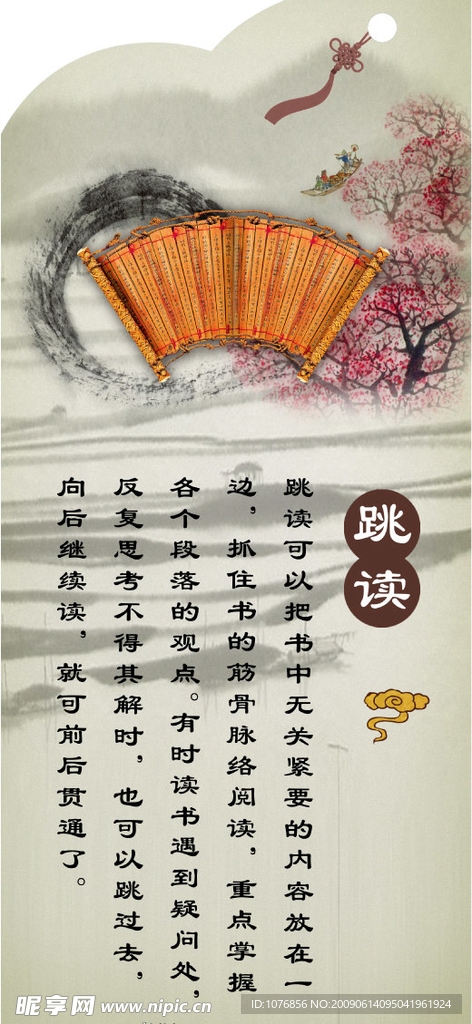 跳读
跳读可以把书中无关紧要的内容放在一
边，抓住书的筋骨脉络阅读，重点掌握
各个段落的观点。有时读书遇到疑问处，
反复思考不得其解时，也可以跳过去，
向后继续读，就可前后贯通了。
昵享网 www.nipic.cn
ID:1076856 NO:20090614095041961924